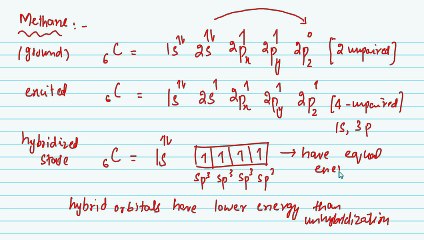 Methane :-
(ground) ₆C = 1s¹⇂ 2s¹⇂ 2pₓ¹ 2pᵧ¹ 2p_z⁰ [2 unpaired]
excited ₆C = 1s¹⇂ 2s¹ 2pₓ¹ 2pᵧ¹ 2p_z¹ [4-unpaired]
1s, 3p
hybridized
state ₆C = 1s¹⇂ 1 1 1 1 → have equal
ene
sp³ sp³ sp³ sp³
hybrid orbitals have lower energy than
unhybridization